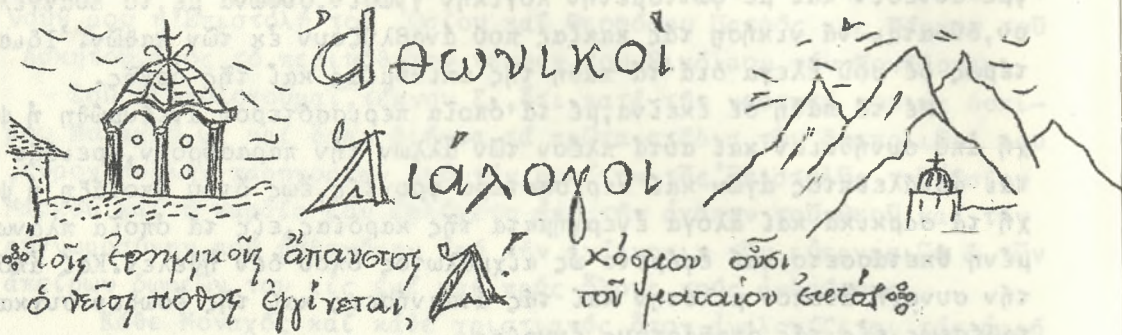 Ἀθωνικοὶ
Διάλογοι
Τοῖς ἐρημικοῖς ἄπαυστος
ὁ θεῖος πόθος ἐγγίνεται,
κόσμου οὖσι
τοῦ ματαίου ἐκτός